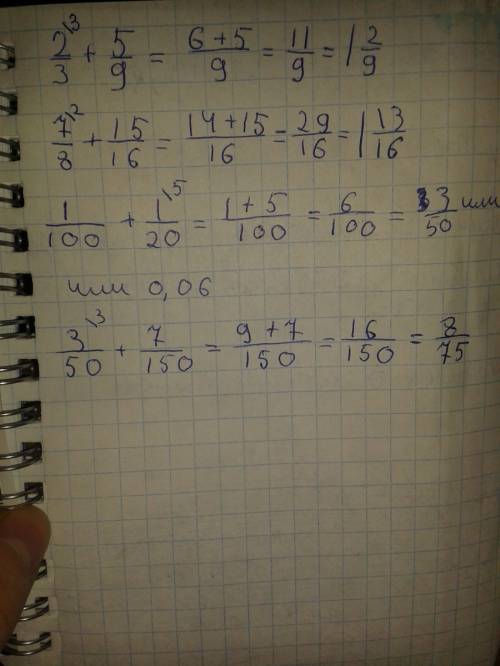 2\3/3 + 5/9 = 6+5/9 = 11/9 = 1 2/9
7\2/8 + 15/16 = 14+15/16 = 29/16 = 1 13/16
1/100 + 1\5/20 = 1+5/100 = 6/100 = 3/50 или
или 0,06
3\3/50 + 7/150 = 9+7/150 = 16/150 = 8/75